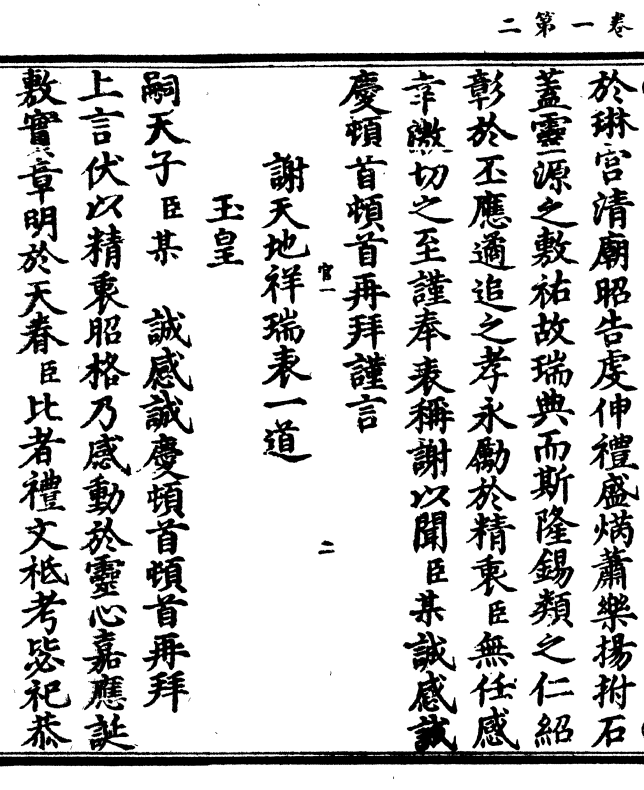 卷一第二
於琳宮清廟昭告虔伸禮盛焫蕭樂揚拊石
蓋靈源之敷祐故瑞典而斯隆錫類之仁紹
彰於丕應遹追之孝永勵於精衷臣無任感
幸激切之至謹奉表稱謝以聞臣某誠感誠
慶頓首頓首再拜謹言
官一
二
謝天地祥瑞表一道
玉皇
嗣天子臣某 誠感誠慶頓首頓首再拜
上言伏以精衷昭格乃感動於靈心嘉應誕
敷實章明於天眷臣比者禮文祗考毖祀恭